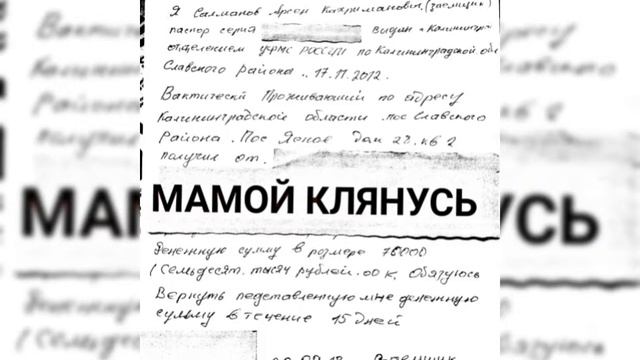 Я Салманов Арсен Кахриманович, (заемщик)
паспор серия выдан в Калинингр.
отделением УФМС РОССИИ по Калининградской обл
Славского района .. 17.11.2012.
Вактически Проживающий по адресу
Калининградской области .пос Славского
Района . Пос Ясное дом 28. кв 2
получил от.
МАМОЙ КЛЯНУСЬ
Денежную сумму в розмере 70000
(Семьдесят. тысяч рублей .00 к. Обязуюсь
Вернуть педставленную мне денежную
сумму в течение 15 дней